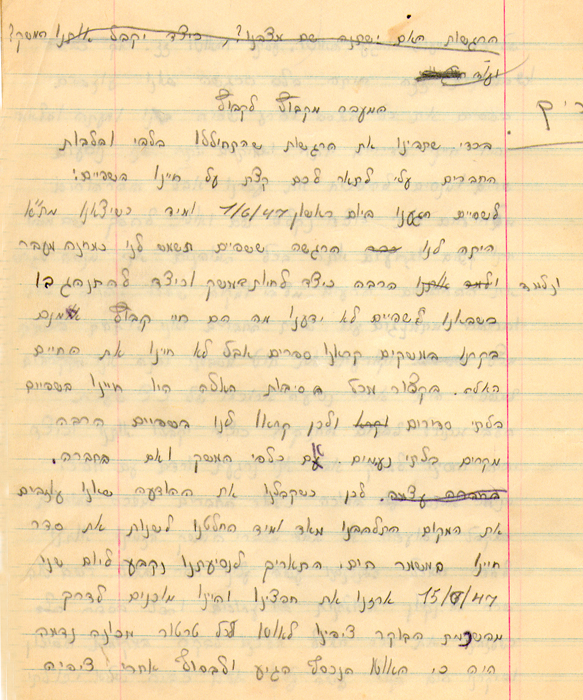 הרגשות האם ישתנה שם מצבנו? כיצד יקבל אותנו המשק?
ועוד
המעבר מקבוץ לקבוץ
בכדי שתבינו את הרגשות שהתחוללו בלבי ובלבות
החברים עלי לתאר לכם קצת על חיינו בשפיים:
לשפיים הגענו ביום ראשון 1/6/47 ומיד כשיצאנו מת"א
היתה לנו הרגשה ששפיים תשמש לנו כמחנה מעבר
ונלמד הרבה כיצד לחיות במשק וכיצד להתנהג בו
כשבאנו לשפיים לא ידענו מה הם חיי קבוץ אמנם
בקרנו במשקים קראנו ספרים אבל לא חיינו את החיים
האלה. הקצור מכל הסיבות האלה היו חיינו בשפיים
בלתי סדירים ולכן קראו לנו בשפיים הרבה
מקרים בלתי נעימים אם כלפי המשק ואם בחברה.
החברה עצמה. לכן כשקבלנו את ההודעה שאנו עוזבים
את המקום התלהבנו מאד ומיד החלטנו לשנות את סדר
חיינו במשמר הים. התאריך לנסיעתנו נקבע ליום שני
15/9/47 ארזנו את חפצינו והיינו מוכנים לדרך
מהשכמת הבוקר ציפינו לאוטו לכל טרטור מכונה נדמה
היה כי האוטו הנכסף הגיע ולבסוף אחרי ציפיה